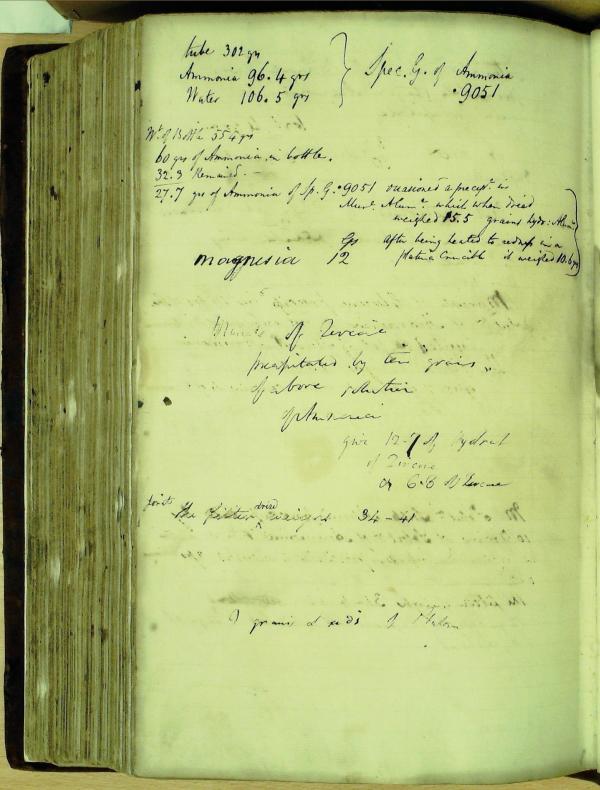 tube 302 grs
Ammonia 96.4 grs
Water 106.5 grs
Spec. G. of Ammonia
.9051
Wt. of Bottle 554 grs
60 grs of Ammonia in bottle.
32.3 Remained
27.7 grs of Ammonia of Sp. G. .9051 occasioned a precipt. in
Murte. Alumn. which when dried
weighed 15.5 grains hydr: Alumn
after being heated to redness in a
platina Crucible it weighed 10.6 grs
Grs
magnesia 12
of Zircone
precipitated by ten grains
of above solution
of Ammonia
give 12.7 of hydrat
of Zircone
or 6.8 of Zircone
first
the filter dried weighs 34-41
9 grains of